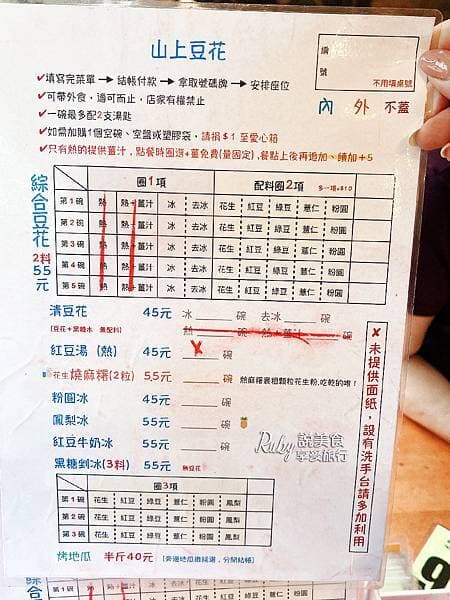 山上豆花
編號
不用填桌號
✔填寫完菜單→結帳付款→拿取號碼牌→安排座位
✔可帶外食,適可而止,店家有權禁止
內 外 不蓋
✔一碗最多配2支湯匙
✔如需加購1個空碗、空盤或塑膠袋,請捐$1至愛心箱
✔只有熱的提供薑汁,點餐時圈選+薑免費(量固定),餐點上後再追加、續加+5
綜合豆花
2料
55元
圈1項 配料圈2項 多一項+$10
第1碗 熱 熱+薑汁 冰 去冰 花生 紅豆 綠豆 薏仁 粉圓
第2碗 熱 熱+薑汁 冰 去冰 花生 紅豆 綠豆 薏仁 粉圓
第3碗 熱 熱+薑汁 冰 去冰 花生 紅豆 綠豆 薏仁 粉圓
第4碗 熱 熱+薑汁 冰 去冰 花生 紅豆 綠豆 薏仁 粉圓
第5碗 熱 熱+薑汁 冰 去冰 花生 紅豆 綠豆 薏仁 粉圓
清豆花 45元 冰 碗 去冰 碗
(豆花+黑糖水 無配料) 熱 碗 熱+薑汁 碗
紅豆湯(熱) 45元 碗
花生燒麻糬(2粒) 55元 碗 熱麻糬裹粗顆粒花生粉,吃乾的唷!
粉圓冰 45元 碗
鳳梨冰 55元 碗
紅豆牛奶冰 55元 碗
黑糖剉冰(3料) 55元 無豆花
圈3項
第1碗 花生 紅豆 綠豆 薏仁 粉圓 鳳梨
第2碗 花生 紅豆 綠豆 薏仁 粉圓 鳳梨
第3碗 花生 紅豆 綠豆 薏仁 粉圓 鳳梨
烤地瓜 半斤40元 (旁邊地瓜攤隔選,分開結帳)
✘未提供面紙,設有洗手台請多加利用
Ruby 說美食
享愛旅行
綜合
第1碗
第2碗
9